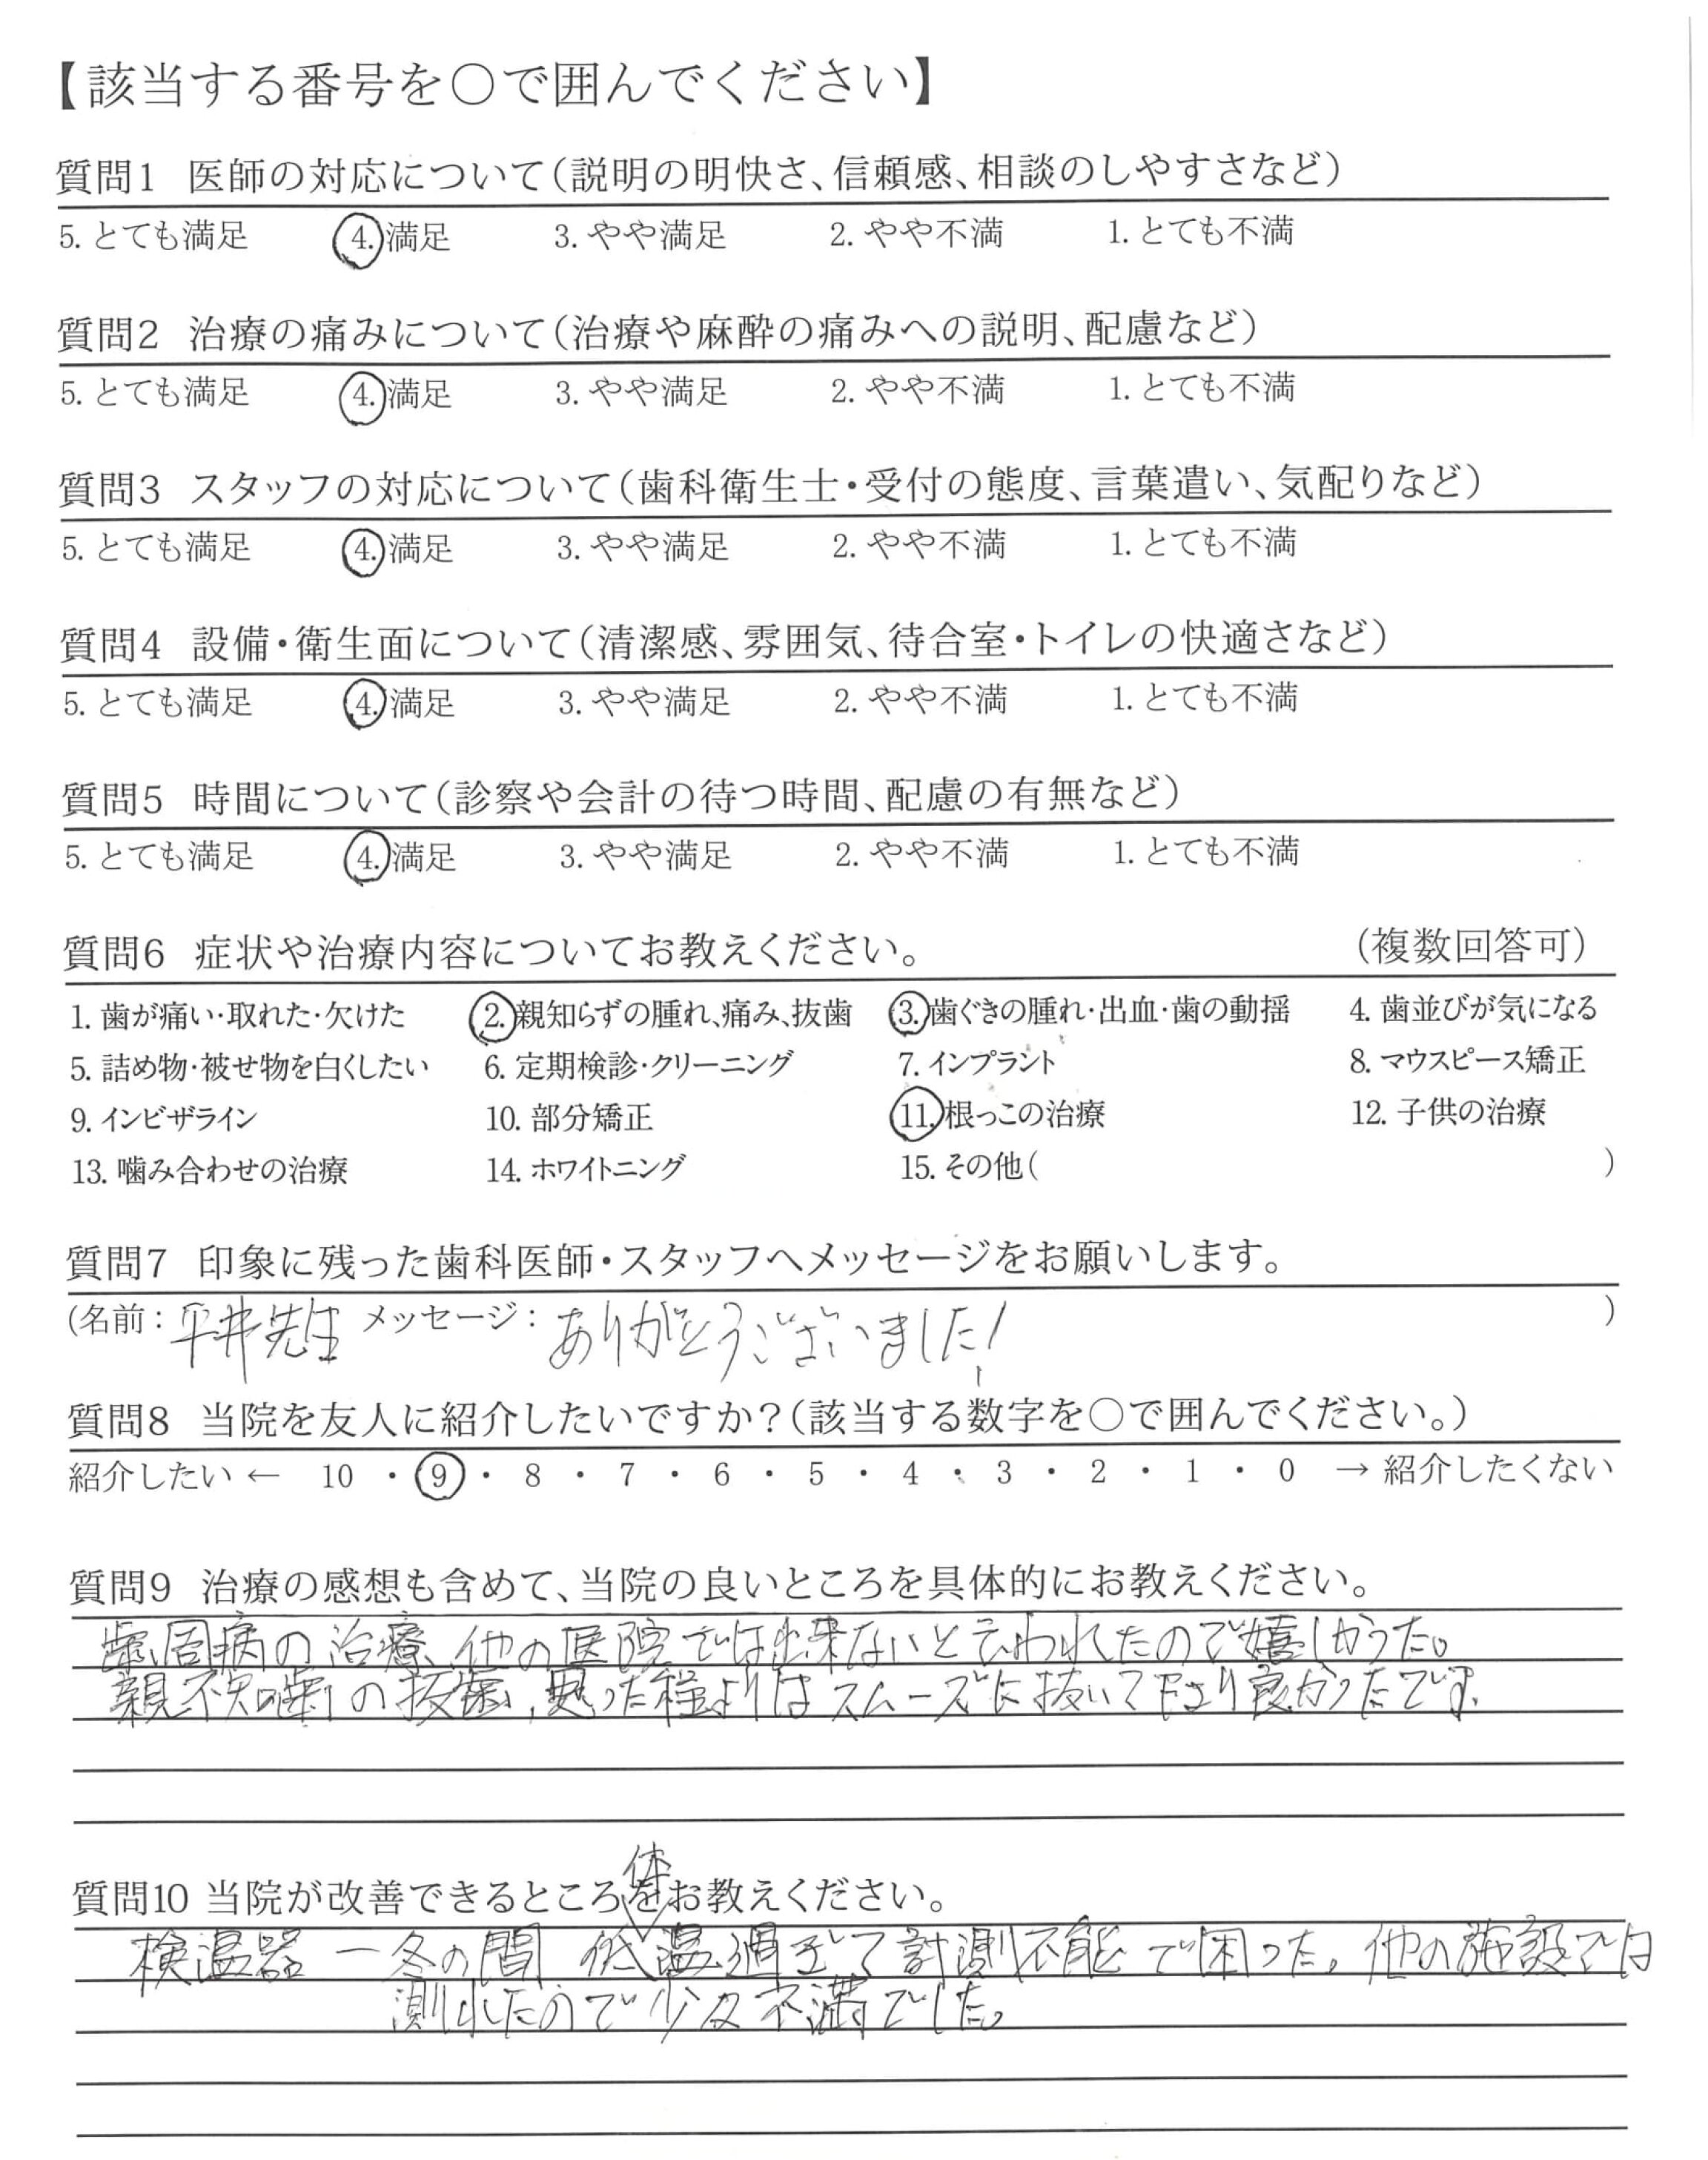 【該当する番号を○で囲んでください】
質問1 医師の対応について(説明の明快さ、信頼感、相談のしやすさなど)
5. とても満足 4. 満足 3. やや満足 2. やや不満 1. とても不満
質問2 治療の痛みについて(治療や麻酔の痛みへの説明、配慮など)
5. とても満足 4. 満足 3. やや満足 2. やや不満 1. とても不満
質問3 スタッフの対応について(歯科衛生士・受付の態度、言葉遣い、気配りなど)
5. とても満足 4. 満足 3. やや満足 2. やや不満 1. とても不満
質問4 設備・衛生面について(清潔感、雰囲気、待合室・トイレの快適さなど)
5. とても満足 4. 満足 3. やや満足 2. やや不満 1. とても不満
質問5 時間について(診察や会計の待つ時間、配慮の有無など)
5. とても満足 4. 満足 3. やや満足 2. やや不満 1. とても不満
質問6 症状や治療内容についてお教えください。 (複数回答可)
1. 歯が痛い・取れた・欠けた 2. 親知らずの腫れ、痛み、抜歯 3. 歯ぐきの腫れ・出血・歯の動揺 4. 歯並びが気になる
5. 詰め物・被せ物を白くしたい 6. 定期検診・クリーニング 7. インプラント 8. マウスピース矯正
9. インビザライン 10. 部分矯正 11. 根っこの治療 12. 子供の治療
13. 噛み合わせの治療 14. ホワイトニング 15. その他( )
質問7 印象に残った歯科医師・スタッフへメッセージをお願いします。
(名前:平井先生 メッセージ:ありがとうございました! )
質問8 当院を友人に紹介したいですか?(該当する数字を○で囲んでください。)
紹介したい ← 10 ・ 9 ・ 8 ・ 7 ・ 6 ・ 5 ・ 4 ・ 3 ・ 2 ・ 1 ・ 0 → 紹介したくない
質問9 治療の感想も含めて、当院の良いところを具体的にお教えください。
歯周病の治療、他の医院では出来ないと言われたので嬉しかった。
親不知歯の抜歯、思った程よりはスムーズに抜いて下さり良かったです。
質問10 当院が改善できるところをお教えください。
検温器 ー冬の間 低体温過ぎて計測不能で困った。他の施設では
測れたので少々不満でした。